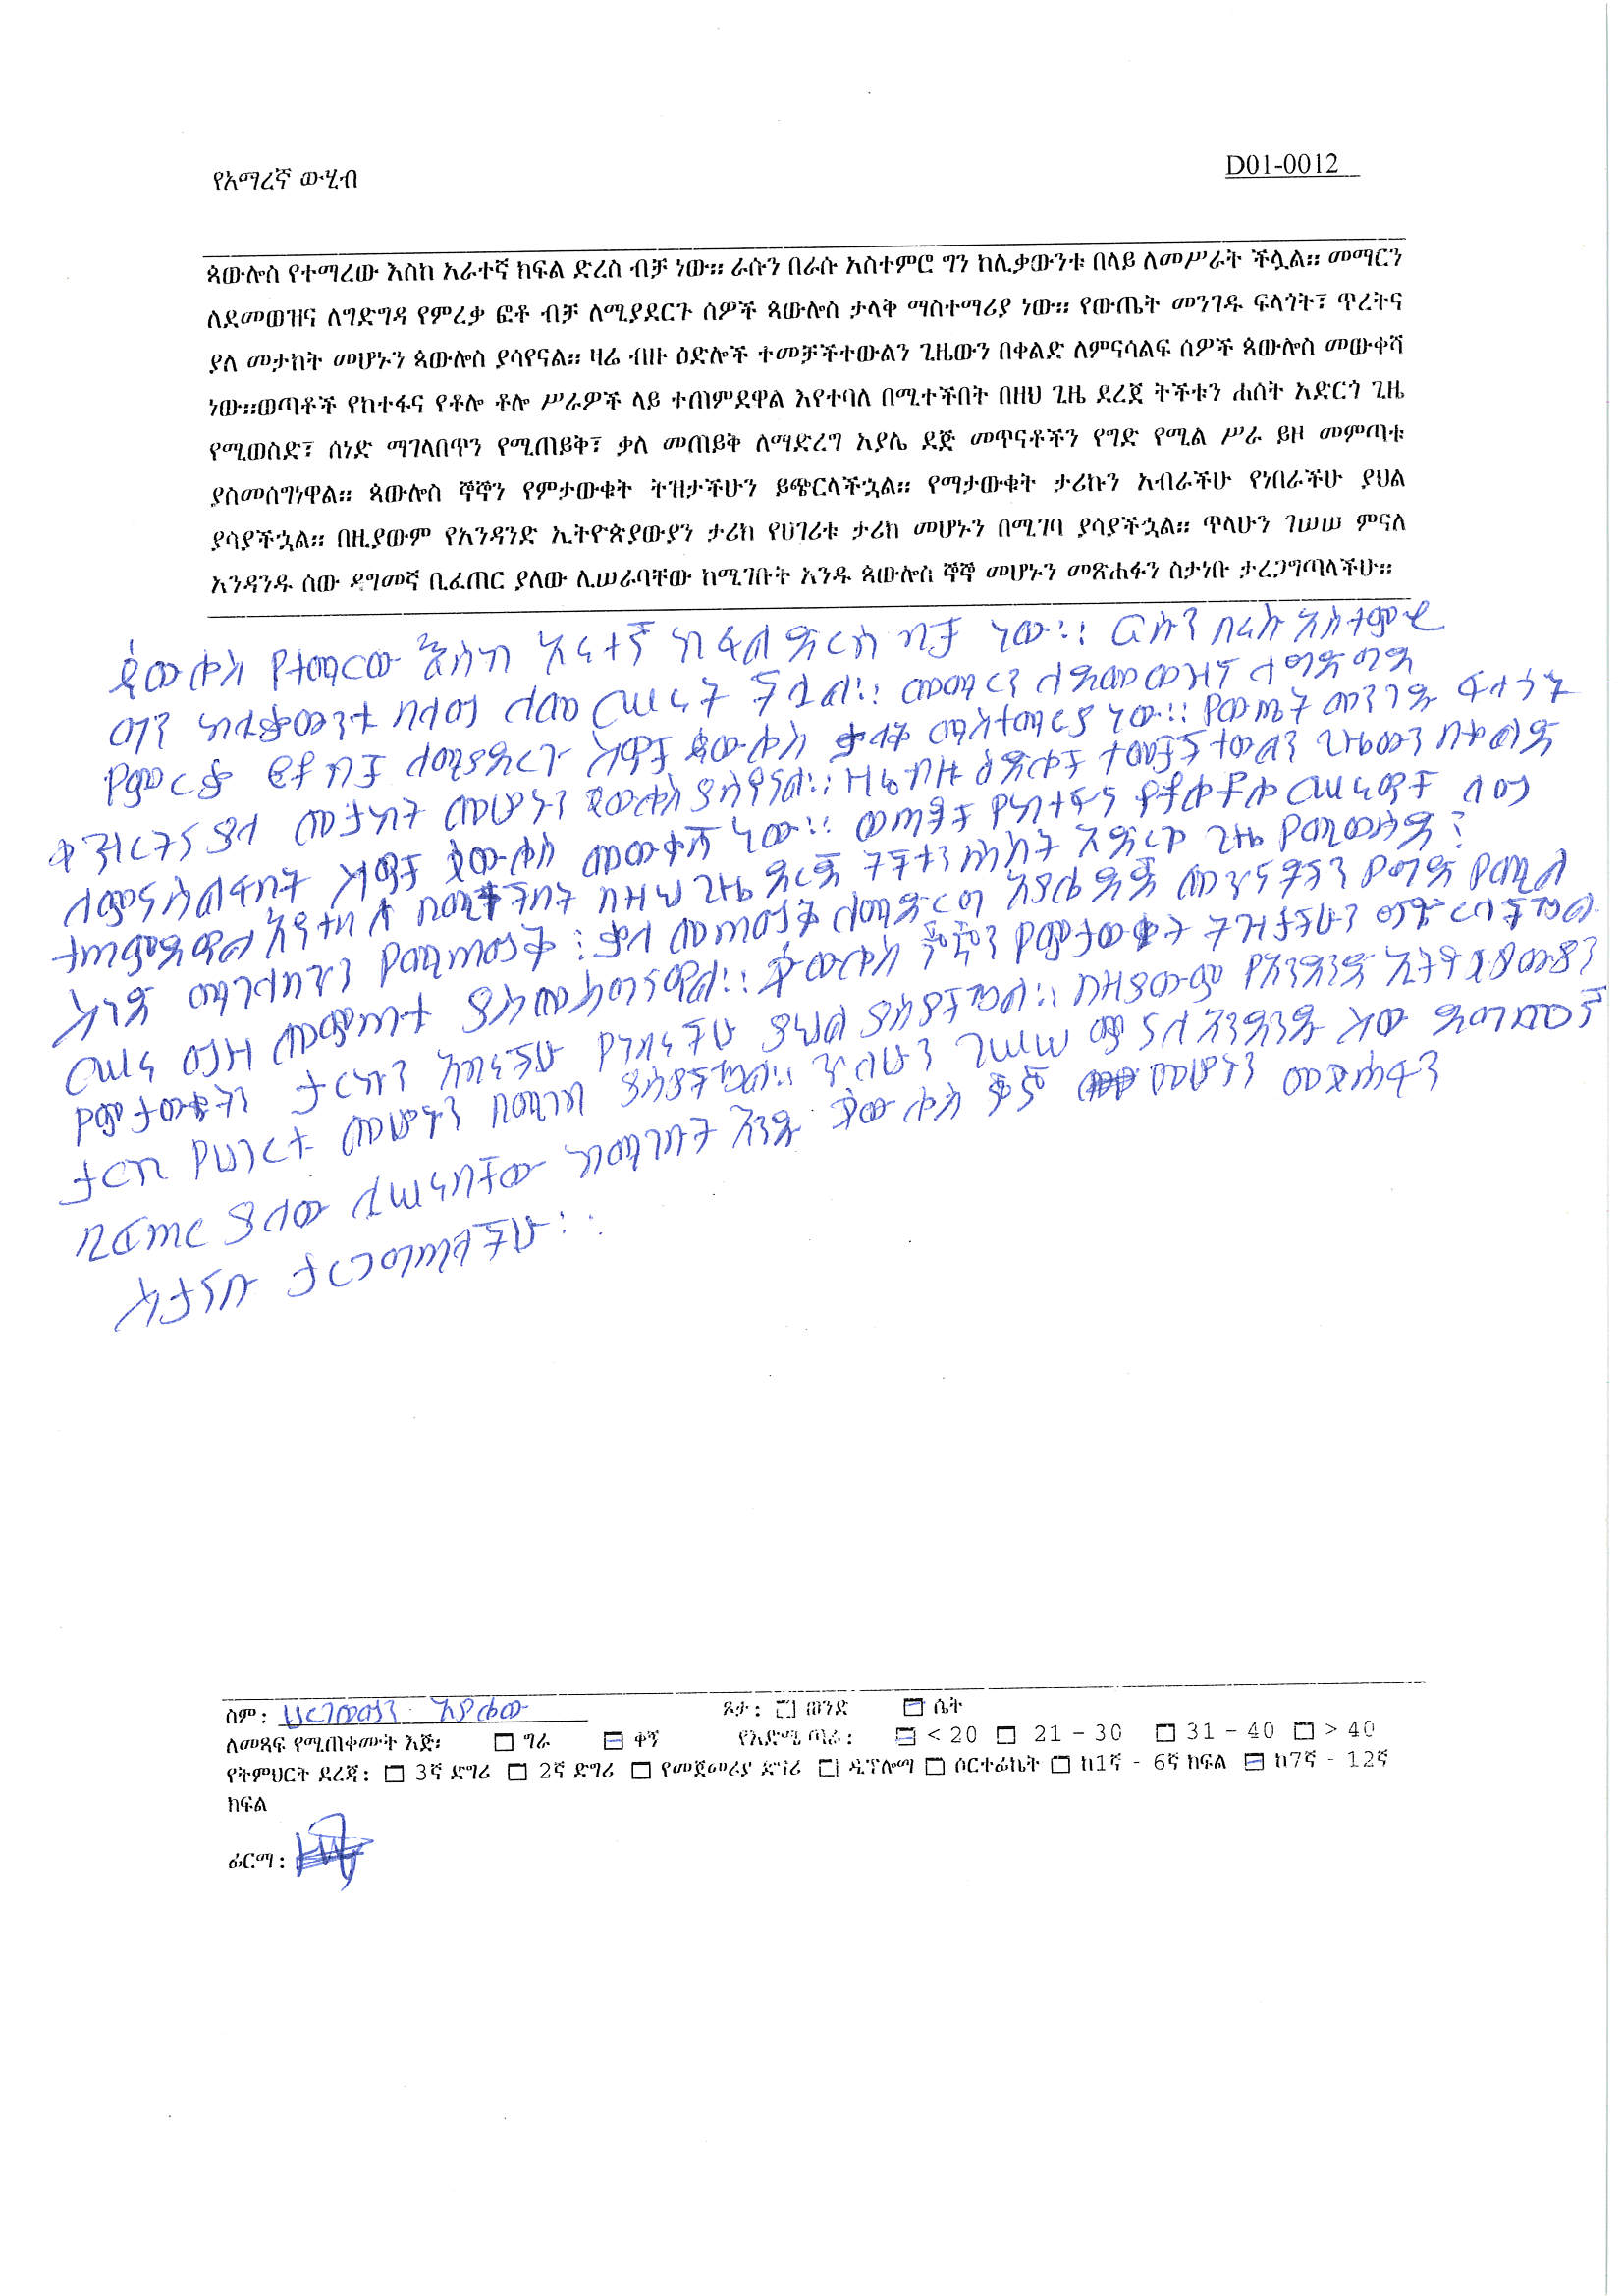 የአማረኛ ውሂብ
D01-0012
ጳውሎስ የተማረው እስከ አራተኛ ክፍል ድረስ ብቻ ነው። ራሱን በራሱ አስተምሮ ግን ከሊቃውንቱ በላይ ለመሥራት ችሏል። መማርን
ለደመወዝና ለግድግዳ የምረቃ ፎቶ ብቻ ለሚያደርጉ ሰዎች ጳውሎስ ታላቅ ማስተማሪያ ነው። የውጤት መንገዱ ፍላጎት፣ ጥረትና
ያለ መታከት መሆኑን ጳውሎስ ያሳየናል። ዛሬ ብዙ ዕድሎች ተመቻችተውልን ጊዜውን በቀልድ ለምናሳልፍ ሰዎች ጳውሎስ መውቀሻ
ነው።ወጣቶች የከተፋና የቶሎ ቶሎ ሥራዎች ላይ ተጠምደዋል እየተባለ በሚተችበት በዘህ ጊዜ ደረጀ ትችቱን ሐሰት አድርጎ ጊዜ
የሚወስድ፣ ሰነድ ማገላበጥን የሚጠይቅ፣ ቃለ መጠይቅ ለማድረግ አያሌ ደጅ መጥናቶችን የግድ የሚል ሥራ ይዞ መምጣቱ
ያስመሰግነዋል። ጳውሎስ ኞኞን የምታውቁት ትዝታችሁን ይጭርላችኋል። የማታውቁት ታሪኩን አብራችሁ የነበራችሁ ያህል
ያሳያችኋል። በዚያውም የአንዳንድ ኢትዮጵያውያን ታሪክ የሀገሪቱ ታሪክ መሆኑን በሚገባ ያሳያችኋል። ጥላሁን ገሠሠ ምናለ
አንዳንዱ ሰው ዳግመኛ ቢፈጠር ያለው ሊሠራባቸው ከሚገቡት አንዱ ጳውሎስ ኞኞ መሆኑን መጽሐፉን ስታነቡ ታረጋግጣላችሁ።
ጳውሎስ የተማርው እስከ አራተኛ ክፋል ድርስ ብቻ ነው። ርሱን በራሱ አስተምሮ
ግን ከሊቃውንቱ በላይ ለመ ርሠራት ችሏል። መማርን ለዳመወዝኛ ለግድግዳ
የምርቃ ፎቶ ብቻ ለሚያዳርጉ ሰዎች ጳውሎስ ታላቅ ማስተማርያ ነው። የውጤት መንገዱ ፋላጎት
ጥርትና ያለ መታከት መሆኑን ጳውሎስ ያሳየናል። ዛሬ ብዙ ዕድሎች ተመቻችተውልን ጊዜውን በቀልድ
ለምናሳልፋበት ሰዎች ጳውሎስ መውቀሻ ነው። ወጣቶች የከተፋና የቶሎ ቶሎ ርሠራዎች ላይ
ተጠምዳዋል እየተባለ በሚተችበት በዘህ ጊዜ ዳርጀ ትችቱን ሐሰት አድርጎ ጊዜ የሚወስድ፣
ሰነድ ማገላበጥን የሚጠይቅ፣ ቃለ መጠይቅ ለማድርግ አያሌ ዳጅ መጥናቶችን የግድ የሚል
ርሠራ ይዞ መምጣቱ ያስመሰግነዋል። ጳውሎስ ኞኞን የምታውቁት ትዝታችሁን ይጭርላችኋል
የምታውቁትን ታርኩን አብራችሁ የነበራችሁ ያህል ያሳያችኋል። በዚያውም የአንዳንድ ኢትዮጲያውያን
ታርክ የሀገርቱ መሆኑን በሚገባ ያሳያችኋል። ጥላሁን ገሠሠ ምናለ አንዳንዱ ሰው ዳግመኛ
ቢፈጠር ያለው ሊሠራባቸው ከሚገቡት አንዱ ጳውሎስ ኞኞ መሆኑን መጽሐፋን
ስታናቡ ታርጋግጣላችሁ።
ስም: አያሌው ጾታ: ወንድ ሴት
ለመጻፍ የሚጠቀሙት እጅ፡ ግራ ቀኝ የእድሜ ጣራ: < 20 21 - 30 31 - 40 > 40
የትምህርት ደረጃ: 3ኛ ድግሪ 2ኛ ድግሪ የመጀመሪያ ድግሪ ዲፕሎማ ሰርተፊኬት ከ1ኛ - 6ኛ ክፍል ከ7ኛ - 12ኛ
ክፍል
ፊርማ: